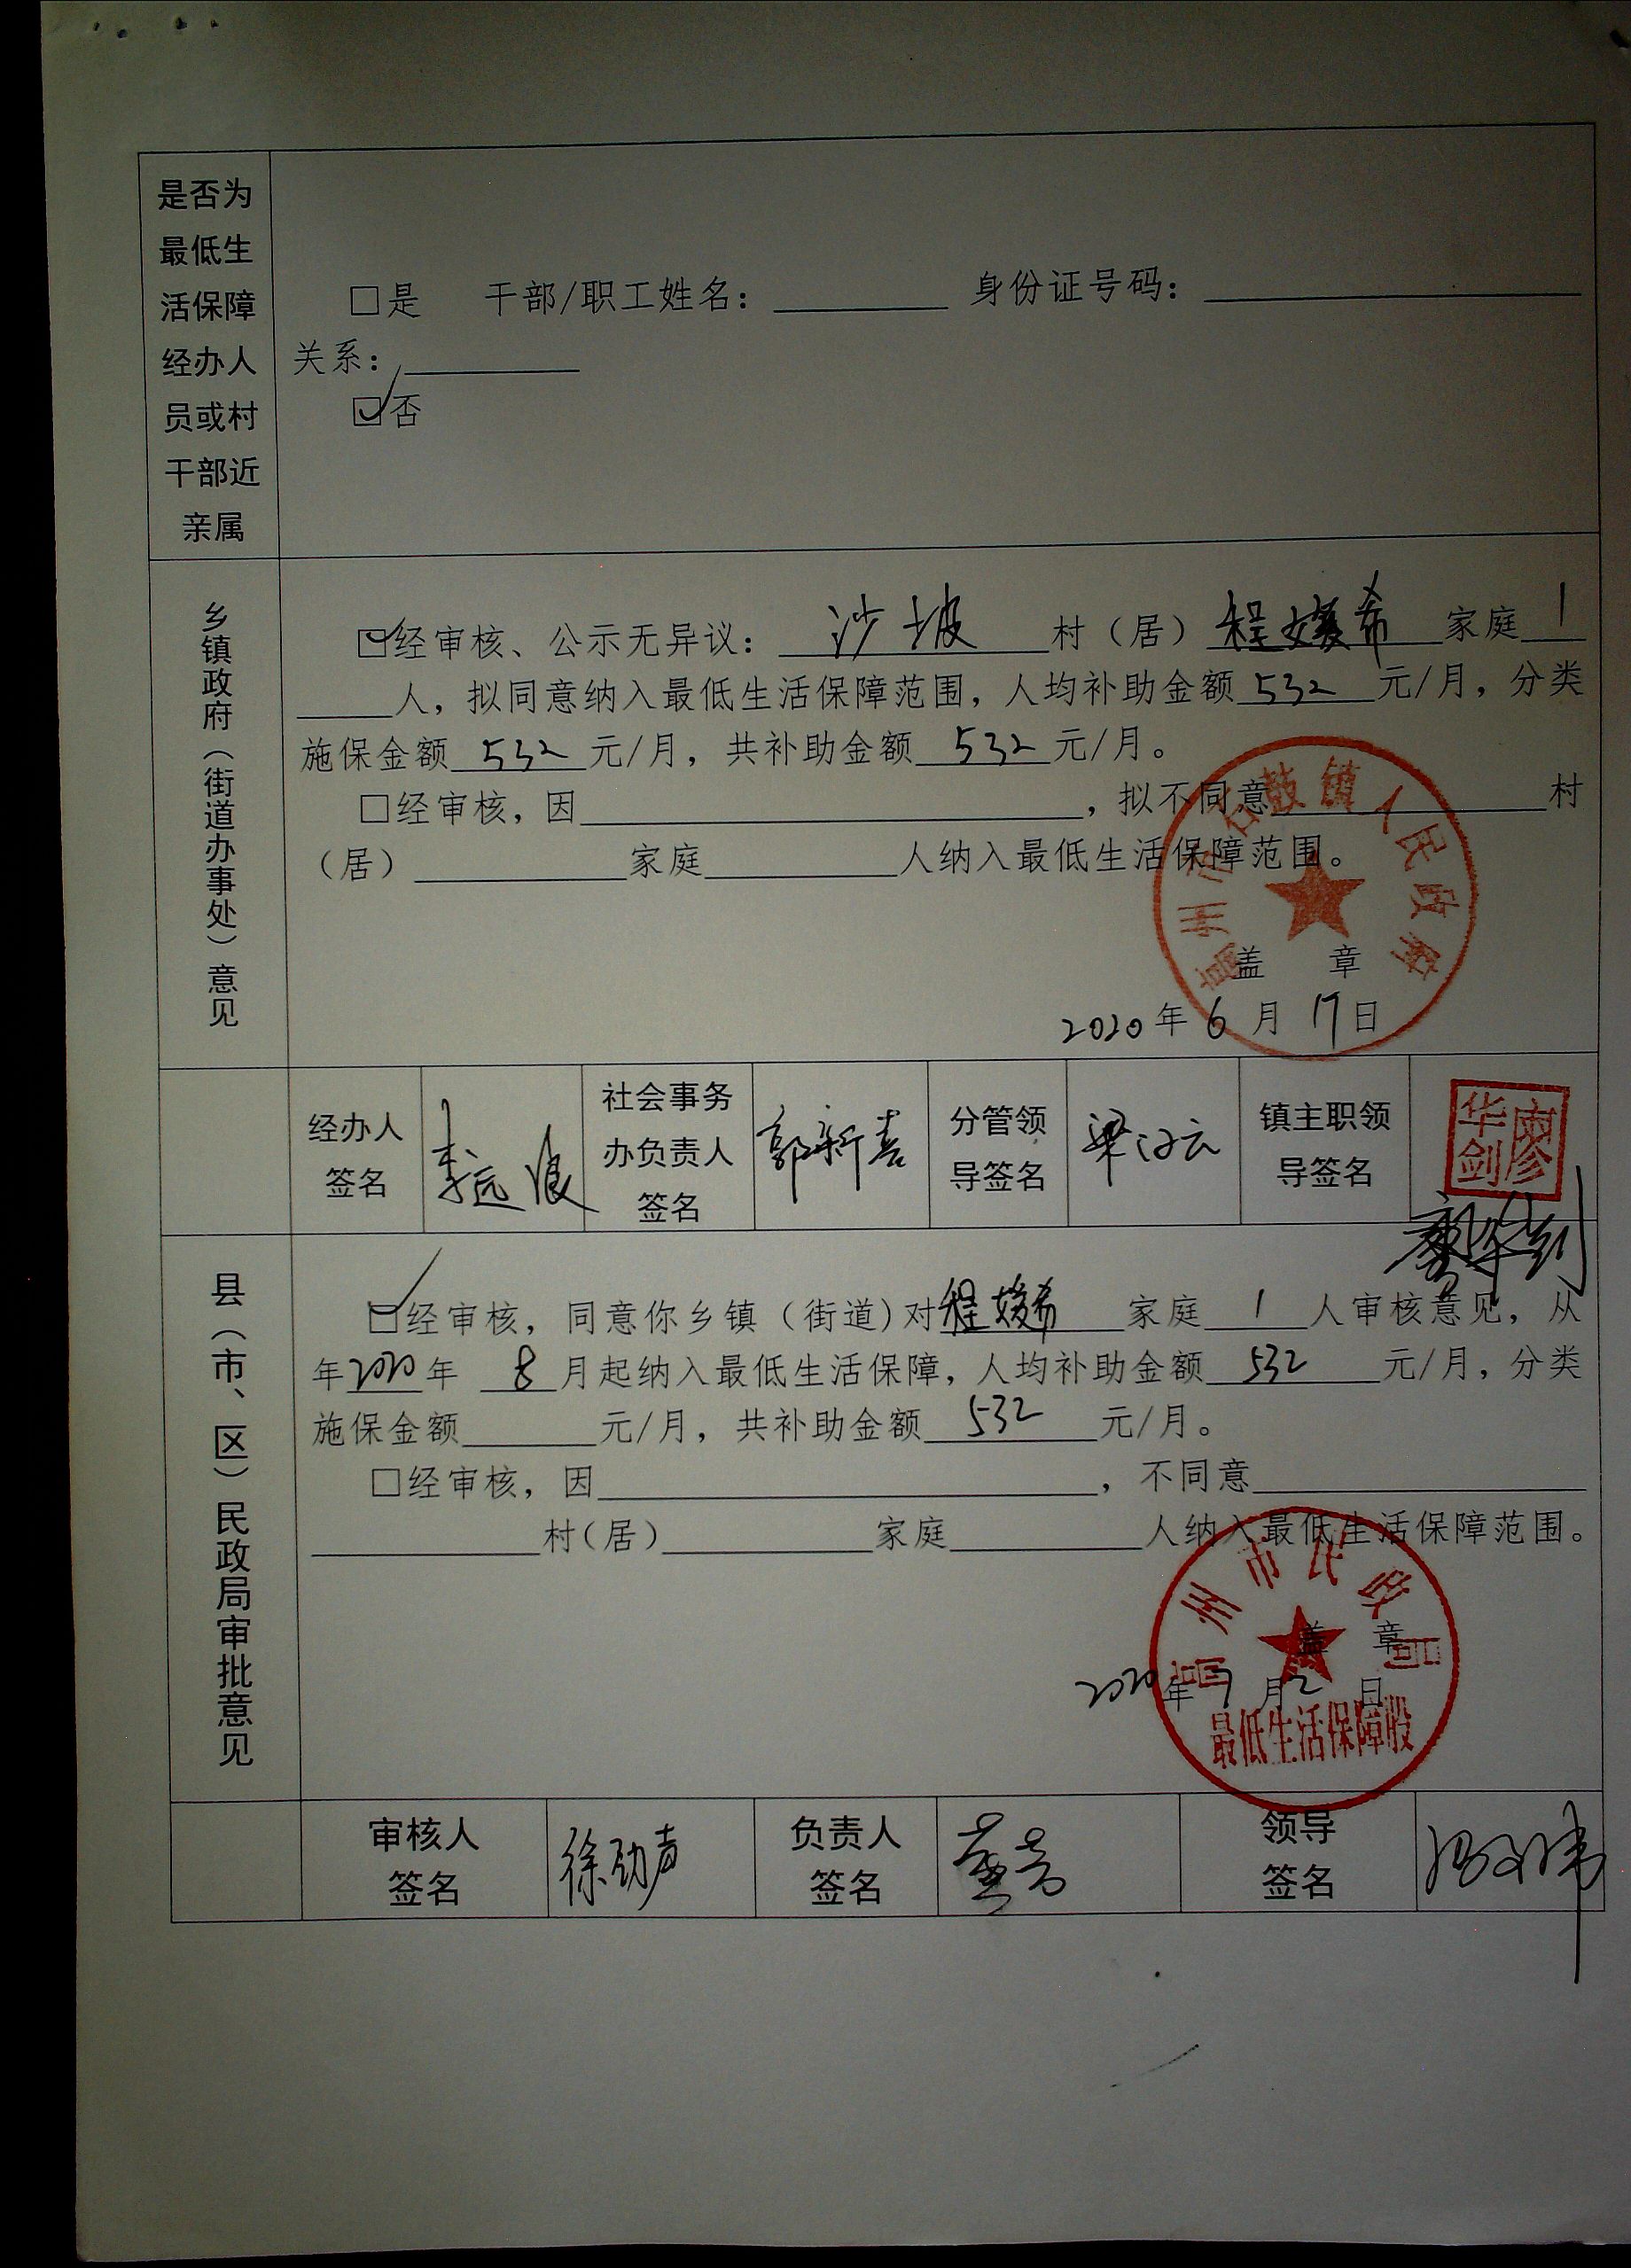 是否为
最低生
活保障
经办人
员或村
干部近
亲属
□是 干部/职工姓名： 身份证号码：
关系：
☑否
乡镇政府（街道办事处）意见
☑经审核、公示无异议： 沙坡 村（居） 程媛希 家庭 1
人，拟同意纳入最低生活保障范围，人均补助金额 532 元/月，分类
施保金额 532 元/月，共补助金额 532 元/月。
□经审核，因 ，拟不同意 村
（居） 家庭 人纳入最低生活保障范围。
高州市石鼓镇人民政府
盖 章
2020 年 6 月 17 日
经办人
签名
李远浪
社会事务
办负责人
签名
郭新喜
分管领
导签名
梁汉云
镇主职领
导签名
廖华剑
廖华剑
县（市、区）民政局审批意见
☑经审核，同意你乡镇（街道)对 程媛希 家庭 1 人审核意见，从
年 2020 年 8 月起纳入最低生活保障，人均补助金额 532 元/月，分类
施保金额 元/月，共补助金额 532 元/月。
□经审核，因 ，不同意
村(居) 家庭 人纳入最低生活保障范围。
高州市民政局
盖 章
2020 年 7 月 2 日
最低生活保障股
审核人
签名
徐劲声
负责人
签名
领导
签名